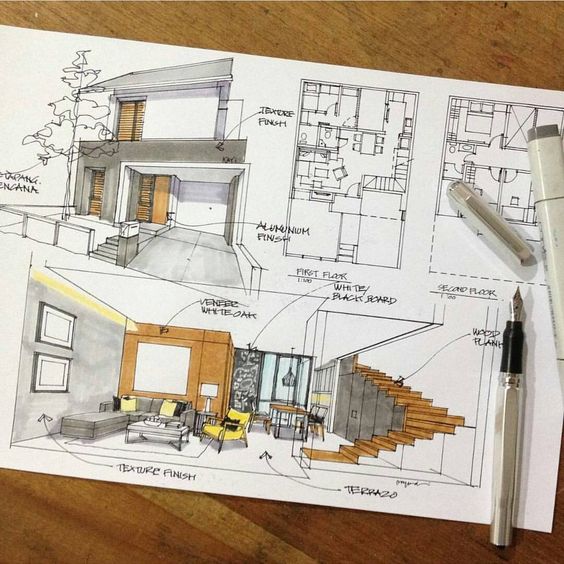 TEXTURE
FINISH
ALUMUNIUM
FINISH
FIRST FLOOR
1:100
SECOND FLOOR
1:100
VENEER
WHITE OAK
WHITE/
BLACK BOARD
WOOD
PLANK
TEXTURE FINISH
TERRAZO